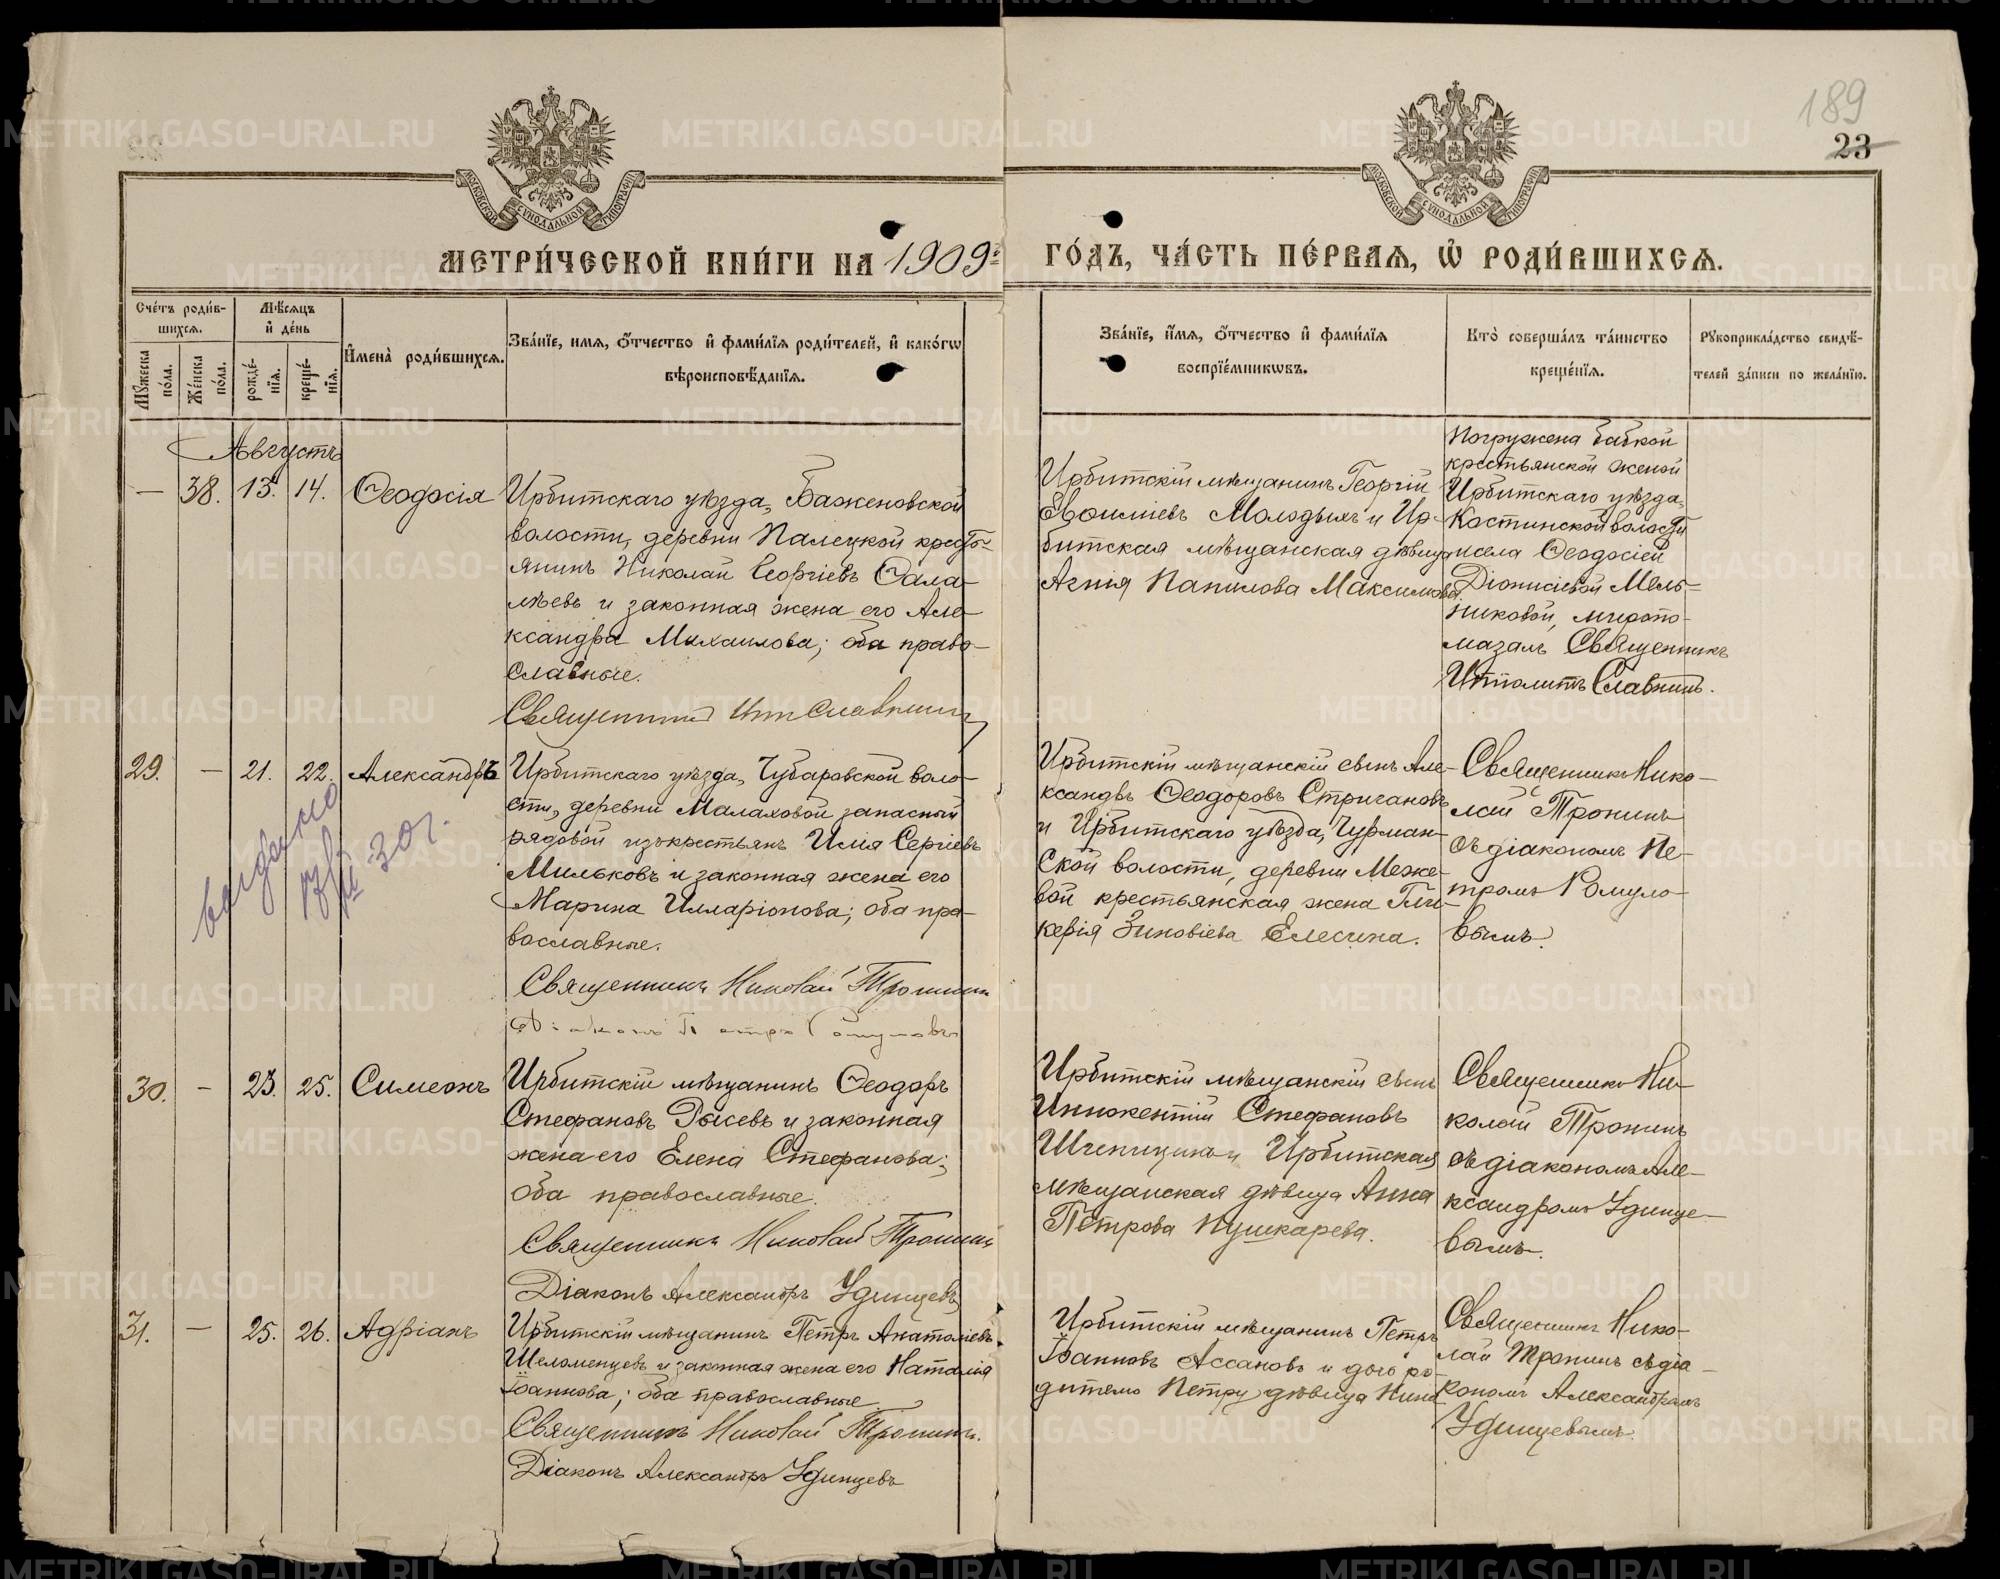 189
23
МОСКОВСКОЙ СѴНОДАЛЬНОЙ ТИПОГРАФІИ
МОСКОВСКОЙ СѴНОДАЛЬНОЙ ТИПОГРАФІИ
МЕТРИ́ЧЕСКОЙ КНИ́ГИ НА 1909 ГО́ДЪ, ЧА́СТЬ ПЕ́РВАѦ, Ѽ РОДИ́ВШИХСѦ.
Сче́тъ роди́в-
шихсѧ.
Мѹжеска по́ла.
Же́нска по́ла.
Мѣ́сѧцъ и҆ де́нь
рожде́-
нїѧ.
креще́-
нїѧ.
И҆мена̀ роди́вшихсѧ.
Зва́нїе, имѧ, ѻ҆́тчество и҆ фами́лїѧ роди́телей, и҆ како́гѡ
вѣроисповѣ́данїѧ.
Зва́нїе, и҆́мѧ, ѻ҆́тчество и҆ фами́лїѧ
воспрїе́мникѡвъ.
Кто̀ соверша́лъ та́инство
креще́нїѧ.
Рꙋкоприкла́дство свидѣ́-
телей за́писи по жела́нїю.
Августъ
— 38. 13. 14. Ѳеодосія
Ирбитскаго уѣзда, Баженовской
волости, деревни Палецкой кресть-
янинъ Николай Георгіевъ Сала-
мѣевъ и законная жена его Але-
ксандра Михаилова; оба право-
славные.
Священникъ Ипп Славнинъ
Ирбитскій мѣщанинъ Георгій
Евѳиміевъ Молодыхъ и Ир-
битская мѣщанская дѣвица
Агнія Панилова Максимова
Погружена бабкой
крестьянской женой
Ирбитскаго уѣзда,
Костинской волости
села Ѳеодосіей
Діонисіевой Мель-
никовой, мѵропо-
мазалъ Священникъ
Ипполитъ Славнинъ.
29. — 21. 22. Александръ
Ирбитскаго уѣзда, Чубаровской воло-
сти, деревни Малаховой запасный
рядовой изъ крестьянъ Илія Сергіевъ
Мильковъ и законная жена его
Марина Илларіонова; оба пра-
вославные.
Священникъ Николай Тронинъ
Діаконъ Петръ Ромуловъ
Ирбитскій мѣщанскій сынъ Але-
ксандръ Ѳеодоровъ Стригановъ
и Ирбитскаго уѣзда, Чурман-
ской волости, деревни Меже-
вой крестьянская жена Гли-
керія Зиновіева Елесина.
Священникъ Нико-
лай Тронинъ
съ діакономъ Пе-
тромъ Ромуло-
вымъ.
выдано
30 г.
30. — 23. 25. Симеонъ
Ирбитскій мѣщанинъ Ѳеодоръ
Стефановъ Рысевъ и законная
жена его Елена Стефанова;
оба православные.
Священникъ Николай Тронинъ
Діаконъ Александръ Удинцевъ
Ирбитскій мѣщанскій сынъ
Иннокентій Стефановъ
Шчепицинъ и Ирбитская
мѣщанская дѣвица Анна
Петрова Пушкарева.
Священникъ Ни-
колай Тронинъ
съ діакономъ Але-
ксандромъ Удинце-
вымъ.
31. — 25. 26. Адріанъ
Ирбитскій мѣщанинъ Петръ Анатоліевъ
Шеломенцевъ и законная жена его Наталія
Іоаннова; оба православные.
Священникъ Николай Тронинъ.
Діаконъ Александръ Удинцевъ
Ирбитскій мѣщанинъ Петръ
Іоанновъ Ассановъ и дочь ро-
дителю Петру дѣвица Нина
Священникъ Нико-
лай Тронинъ съ діа-
кономъ Александромъ
Удинцевымъ.
METRIKI.GASO-URAL.RU